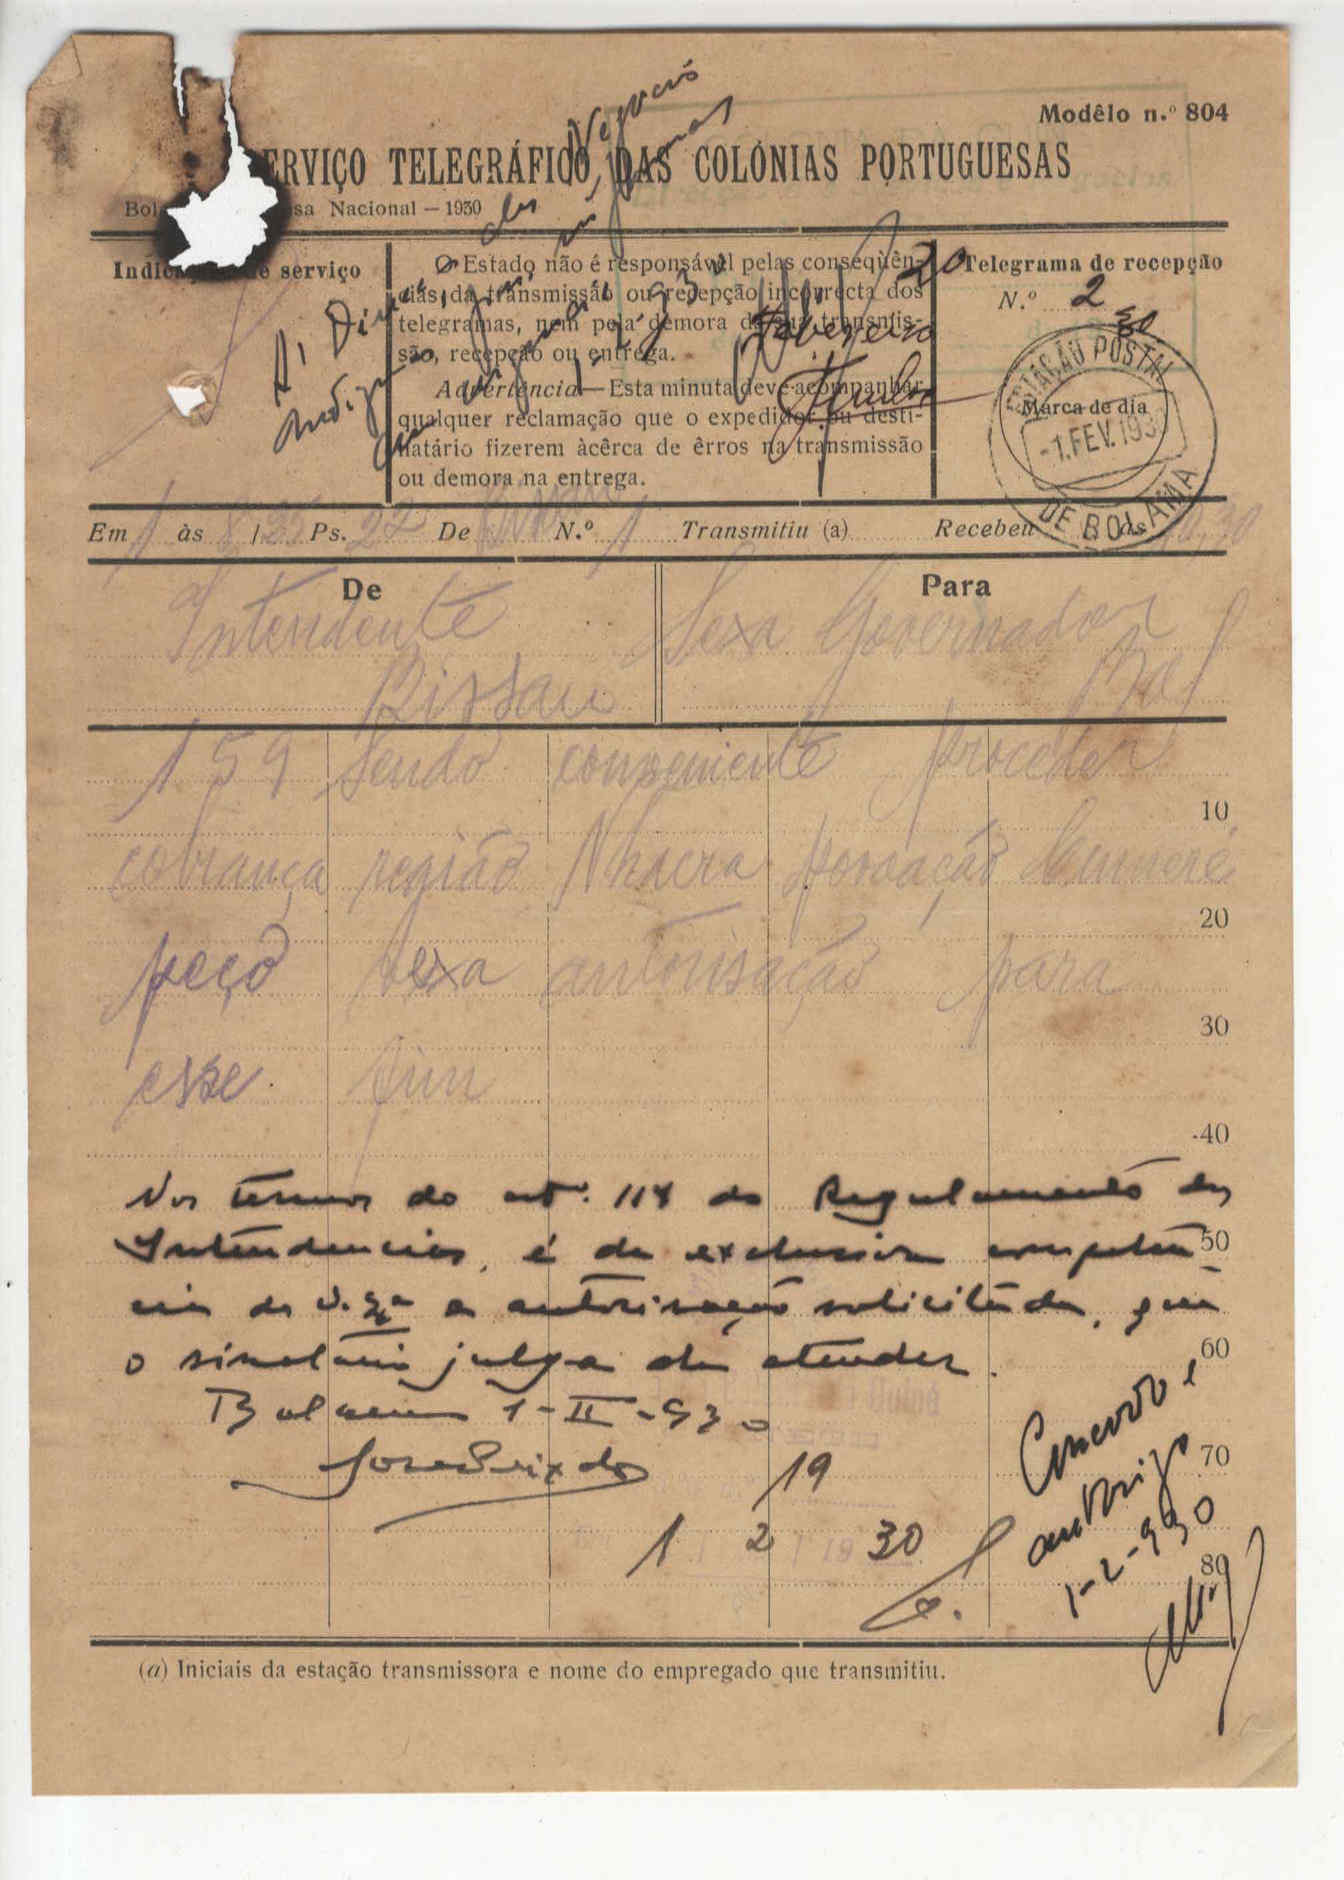 Modêlo n.º 804
SERVIÇO TELEGRÁFICO DAS COLÓNIAS PORTUGUESAS
Nacional — 1930
Indic de serviço
O Estado não é responsável pelas conseqüên-
cias da transmissão ou recepção incorrecta dos
telegramas, nem pela demora da sua transmis-
são, recepção ou entrega.
Advertência — Esta minuta deve acompanhar
qualquer reclamação que o expedidor ou desti-
natário fizerem àcêrca de êrros na transmissão
ou demora na entrega.
Telegrama de recepção
N.º 2
ESTAÇÃO POSTAL
Marca de dia
-1.FEV.193
DE BOLAMA
Á Dire
dos
Negocios
indígenas
20
Fevereiro
Em 1 às 8/25 Ps. 22 De Bissau N.º 1 Transmitiu (a) Recebeu às 10,30
De
Para
Intendente
Bissau
Sexa Governador
Bol
159 Sendo conveniente proceder
10
cobrança região Nhacra povoação Cumeré
20
peço Vexa autorisação para
30
esse fim
40
Nos termos do art.º 114 do Regulamento das
Intendencias, é da exclusiva competen
50
cia de V. Exª a autorisação solicitada, que
o sinatario julga de atender.
60
Bolama 1-II-930
José Peixoto
70
19
1 2 30
80
Concordo e
autorizo
1-2-930
(a) Iniciais da estação transmissora e nome do empregado que transmitiu.